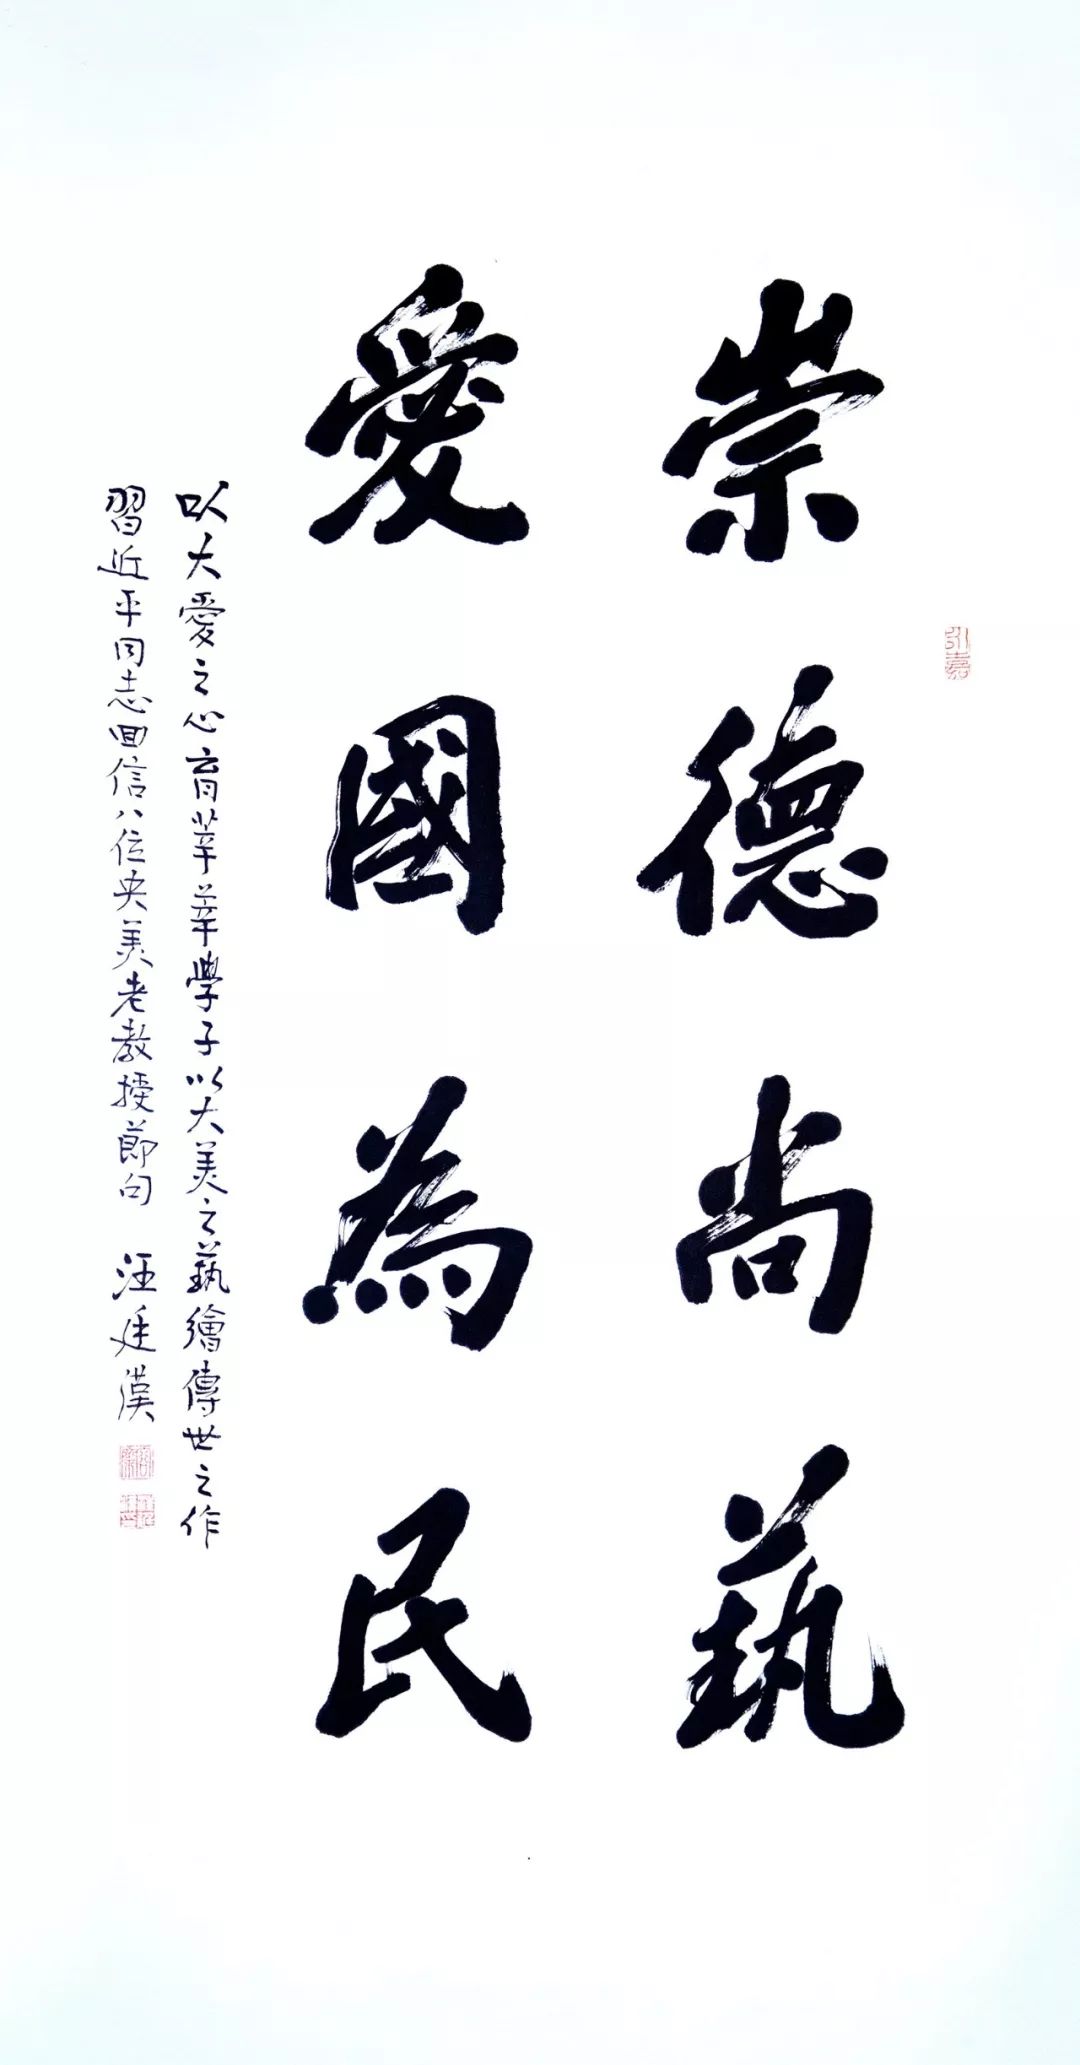 崇德尚藝
愛國為民
以大愛之心育莘莘學子以大美之藝繪傳世之作
習近平同志回信八位央美老教授節句 汪廷漢